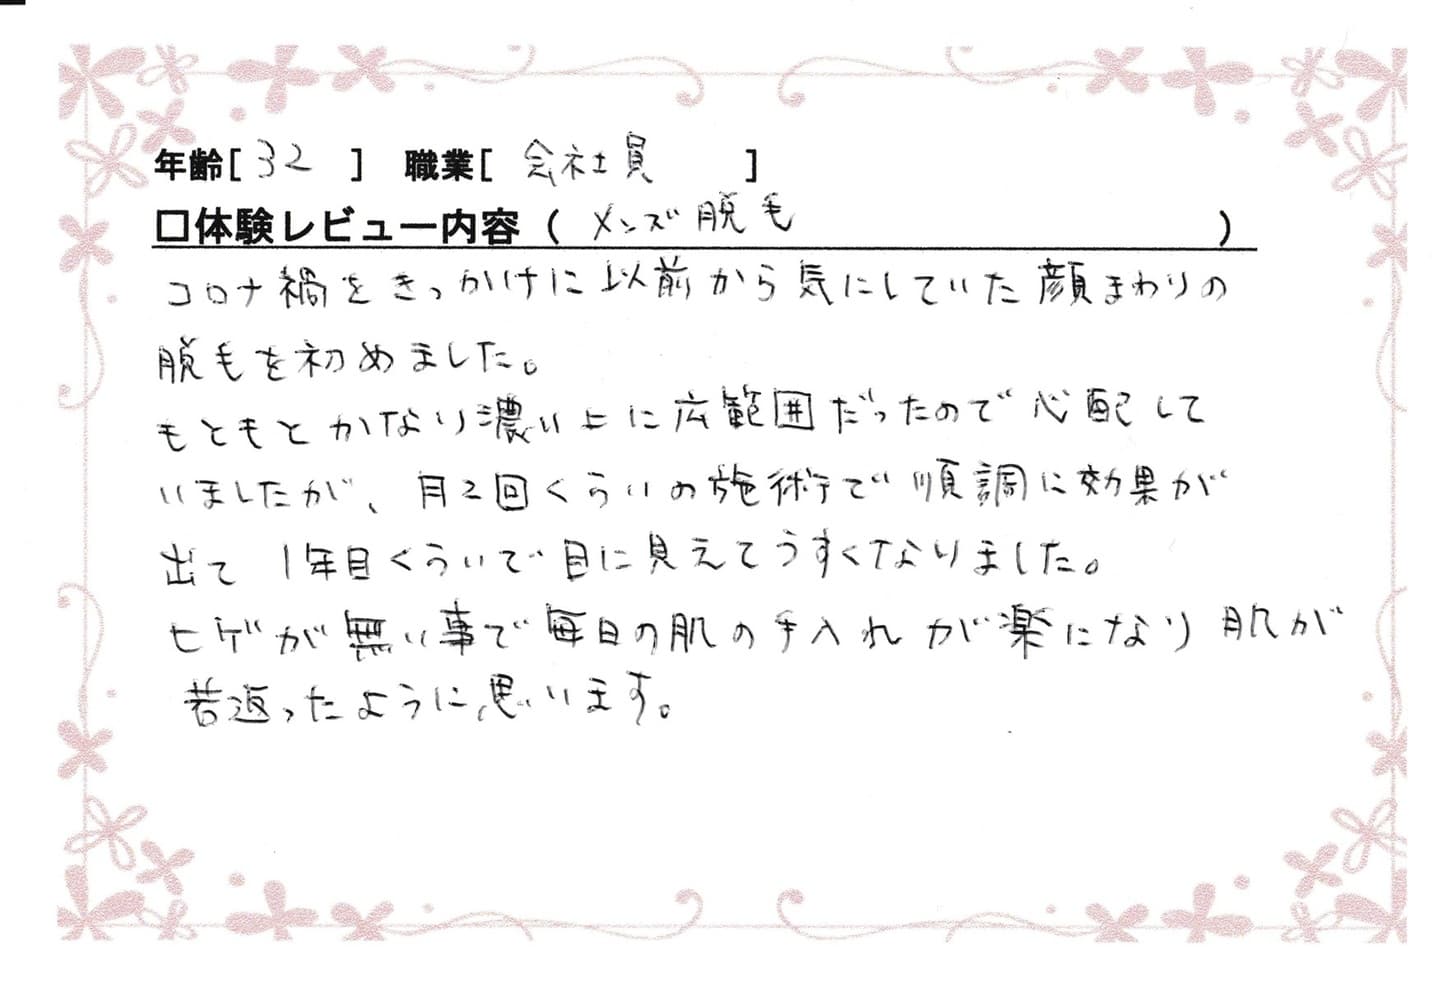 年齢[ 32 ] 職業[ 会社員 ]
□体験レビュー内容（ メンズ脱毛 ）
コロナ禍をきっかけに以前から気にしていた顔まわりの
脱毛を初めました。
もともとかなり濃い上に広範囲だったので心配して
いましたが、月2回くらいの施術で順調に効果が
出て 1年目くらいで目に見えてうすくなりました。
ヒゲが無い事で毎日の肌の手入れが楽になり肌が
若返ったように思います。